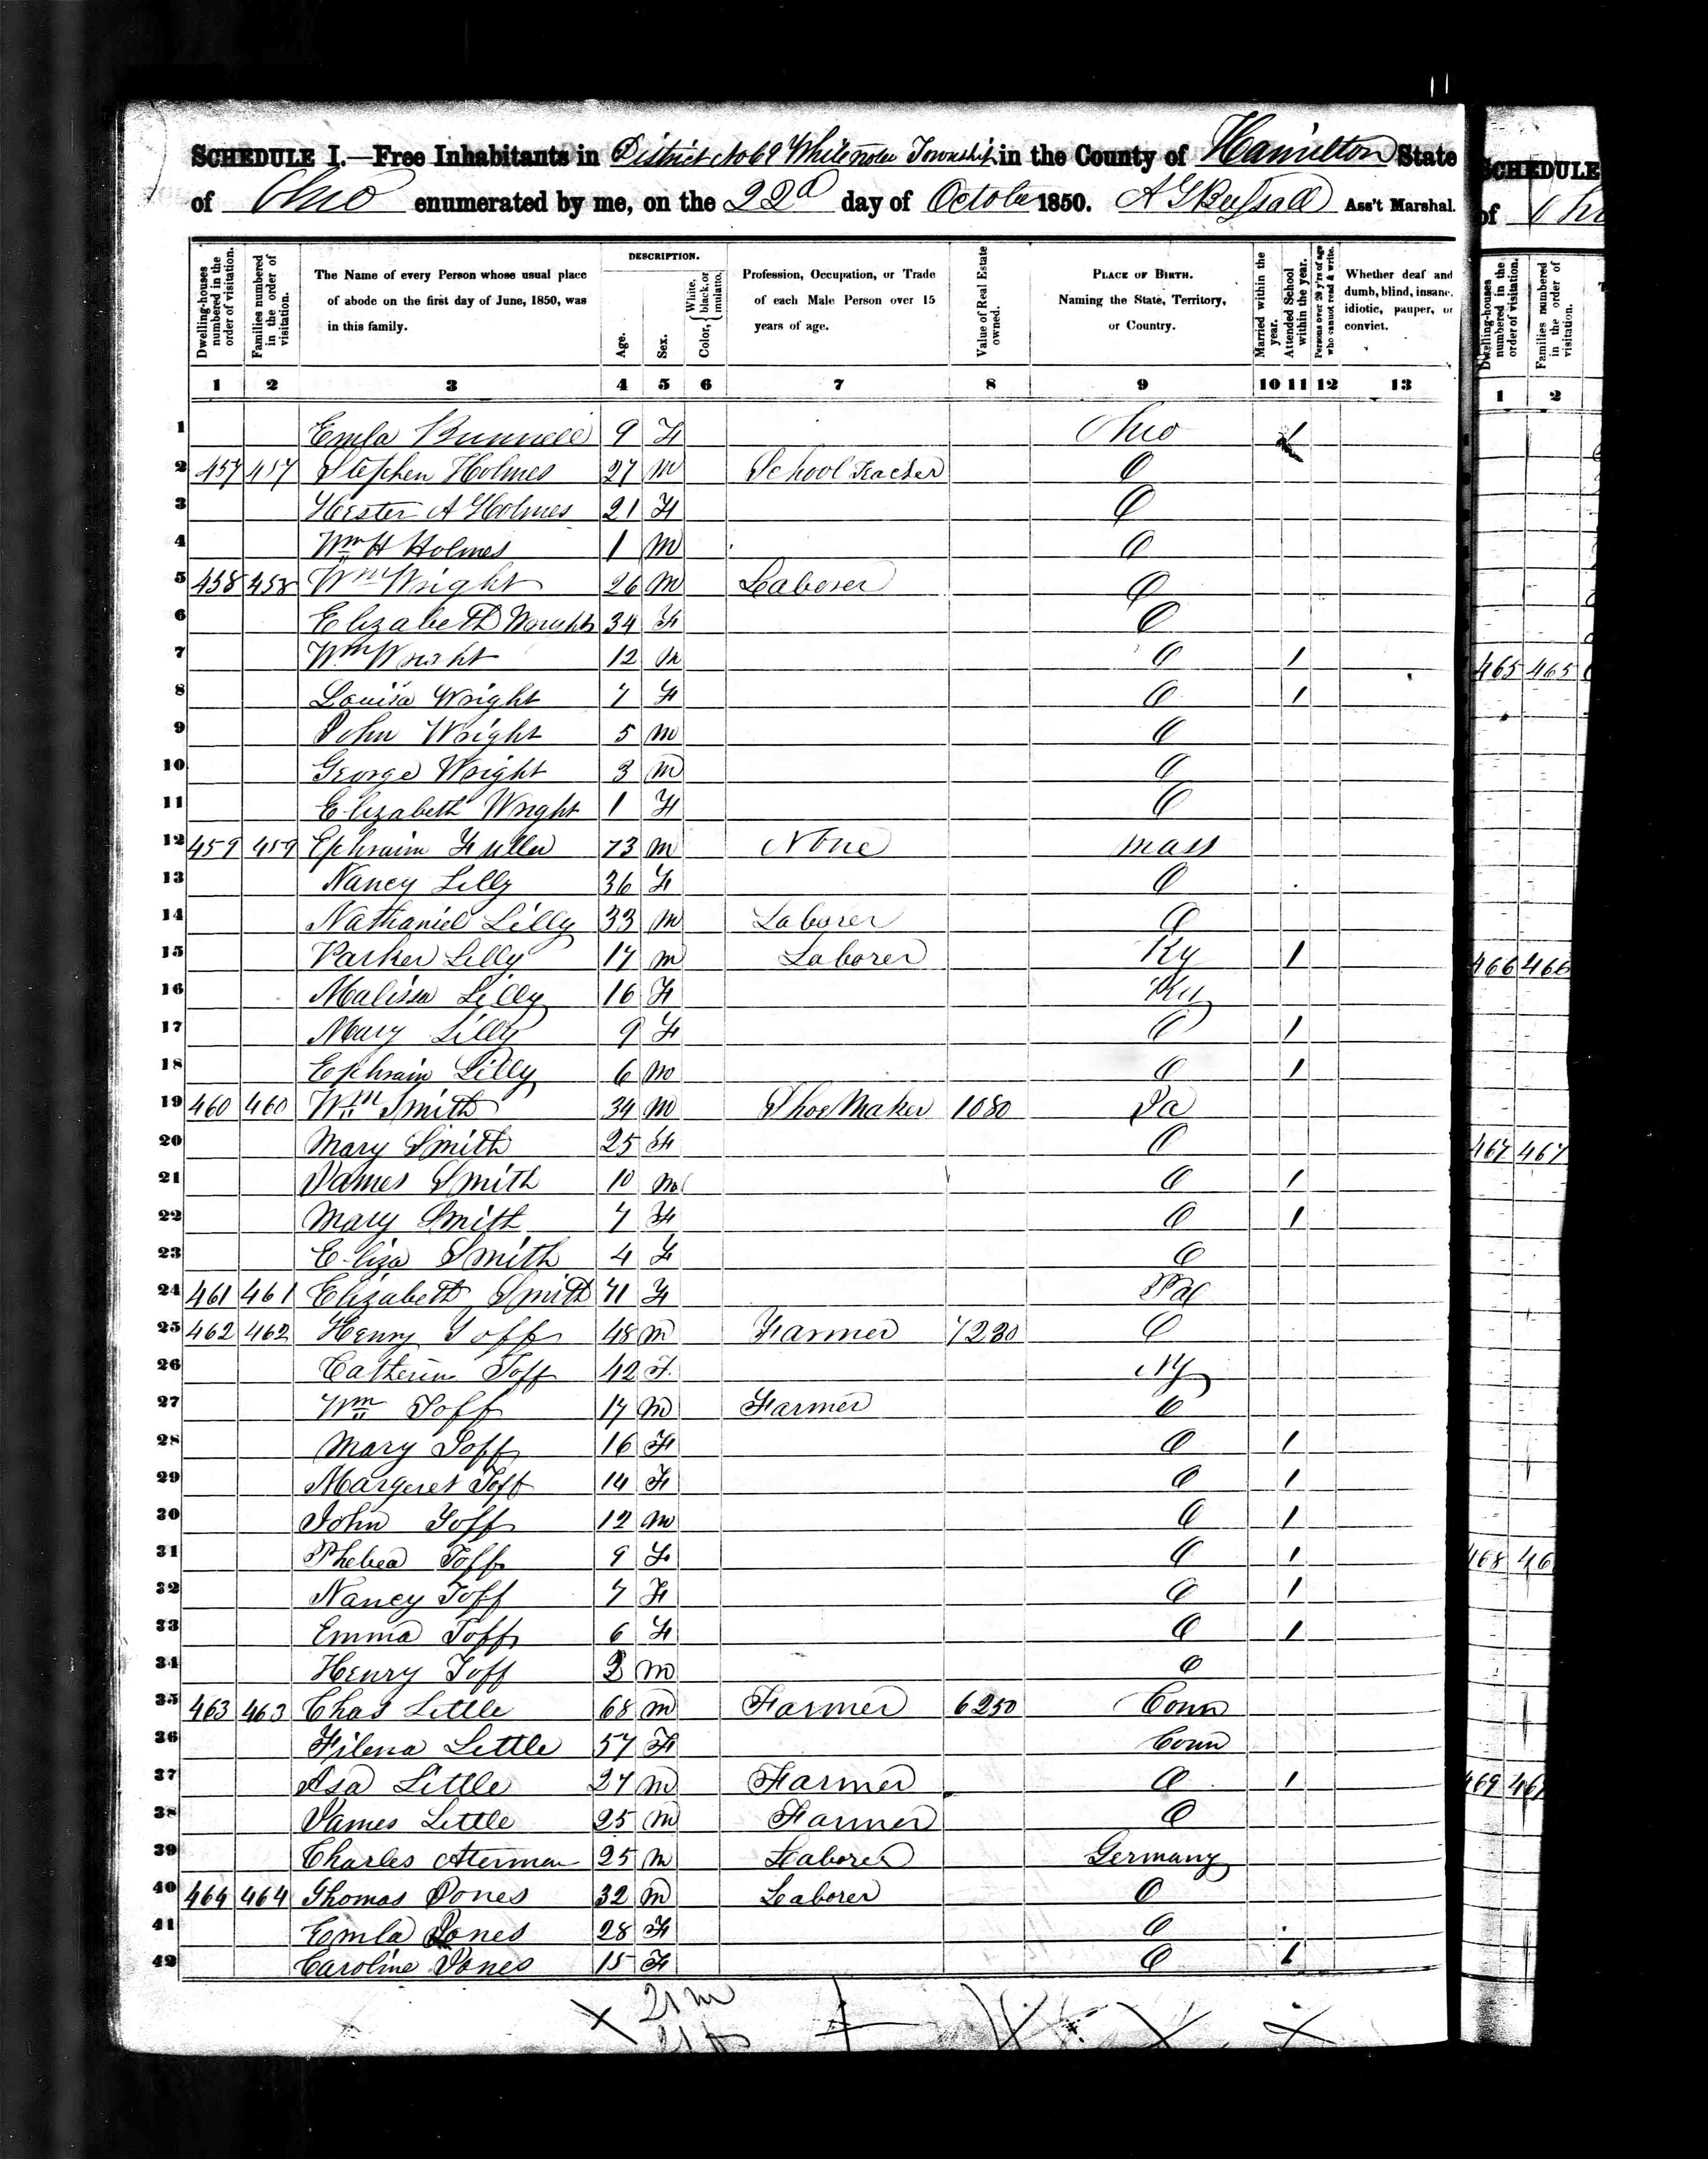 SCHEDULE I.—Free Inhabitants in District No 69 Whitewater Township in the County of Hamilton State
of Ohio enumerated by me, on the 22d day of October 1850. A G Ass't Marshal.
Dwelling-houses numbered in the order of visitation. Families numbered in the order of visitation. The Name of every Person whose usual place of abode on the first day of June, 1850, was in this family. DESCRIPTION. Age. Sex. Color, White, black, or mulatto. Profession, Occupation, or Trade of each Male Person over 15 years of age. Value of Real Estate owned. PLACE OF BIRTH. Naming the State, Territory, or Country. Married within the year. Attended School within the year. Persons over 20 y'rs of age who cannot read & write. Whether deaf and dumb, blind, insane, idiotic, pauper, or convict.
1 2 3 4 5 6 7 8 9 10 11 12 13
1 Emla Bunnell 9 F Ohio 1
2 457 457 Stephen Holmes 27 M School Teacher O
3 Hester A Holmes 21 F O
4 Wm H Holmes 1 M O
5 458 458 Wm Wright 26 M Laborer O
6 Elizabeth Wright 34 F O
7 Wm Wright 12 M O 1
8 Louisa Wright 7 F O 1
9 John Wright 5 M O
10 George Wright 3 M O
11 Elizabeth Wright 1 F O
12 459 459 Ephraim Fuller 73 M None Mass
13 Nancy Lilly 36 F O
14 Nathaniel Lilly 33 M Laborer O
15 Parker Lilly 17 M Laborer Ky 1
16 Malissa Lilly 16 F Ky
17 Mary Lilly 9 F O 1
18 Ephraim Lilly 6 M O 1
19 460 460 Wm Smith 34 M Shoe Maker 1080 Pa
20 Mary Smith 25 F O
21 James Smith 10 M O 1
22 Mary Smith 7 F O 1
23 Eliza Smith 4 F O
24 461 461 Elizabeth Smith 71 F Pa
25 462 462 Henry Toff 48 M Farmer 7280 O
26 Catherin Toff 42 F NY
27 Wm Toff 17 M Farmer O
28 Mary Toff 16 F O 1
29 Margeret Toff 14 F O 1
30 John Toff 12 M O 1
31 Phebea Toff 9 F O 1
32 Nancy Toff 7 F O 1
33 Emma Toff 6 F O 1
34 Henry Toff 2 M O
35 463 463 Chas Little 68 M Farmer 6250 Conn
36 Filena Little 57 F Conn
37 Asa Little 27 M Farmer O 1
38 James Little 25 M Farmer O
39 Charles 25 M Laborer Germany
40 464 464 Thomas Jones 32 M Laborer O
41 Emla Jones 28 F O
42 Caroline Jones 15 F O 1
21 m
SCHEDULE
of
Dwelling-houses numbered in the order of visitation. Families numbered in the order of visitation.
1 2
465 465
466 466
467 467
468 46
469 469